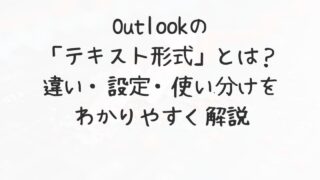 Outlookの
「テキスト形式」とは？
違い・設定・使い分けを
わかりやすく解説